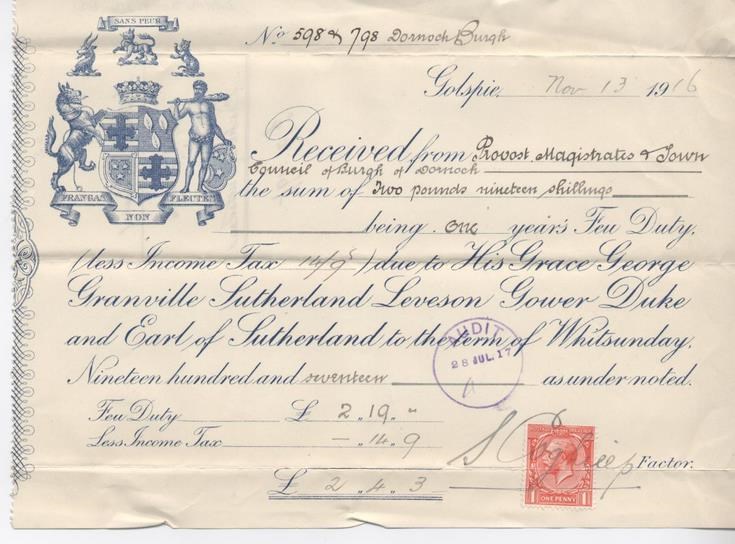 SANS PEUR
FRANGAS NON FLECTES
No 598 & 798 Dornoch Burgh
Golspie, Nov 13 1916
Received from Provost, Magistrates & Town
Council of Burgh of Dornoch
the sum of Two pounds nineteen shillings
being one year's Feu Duty,
(less Income Tax 14/9d) due to His Grace George
Granville Sutherland Leveson Gower Duke
and Earl of Sutherland to the term of Whitsunday,
Nineteen hundred and seventeen as under noted.
AUDIT
28 JUL. 17
Feu Duty £ 2 „ 19 „ „
Less Income Tax — „ 14 „ 9
Factor.
£ 2 „ 4 „ 3
1 ONE PENNY 1